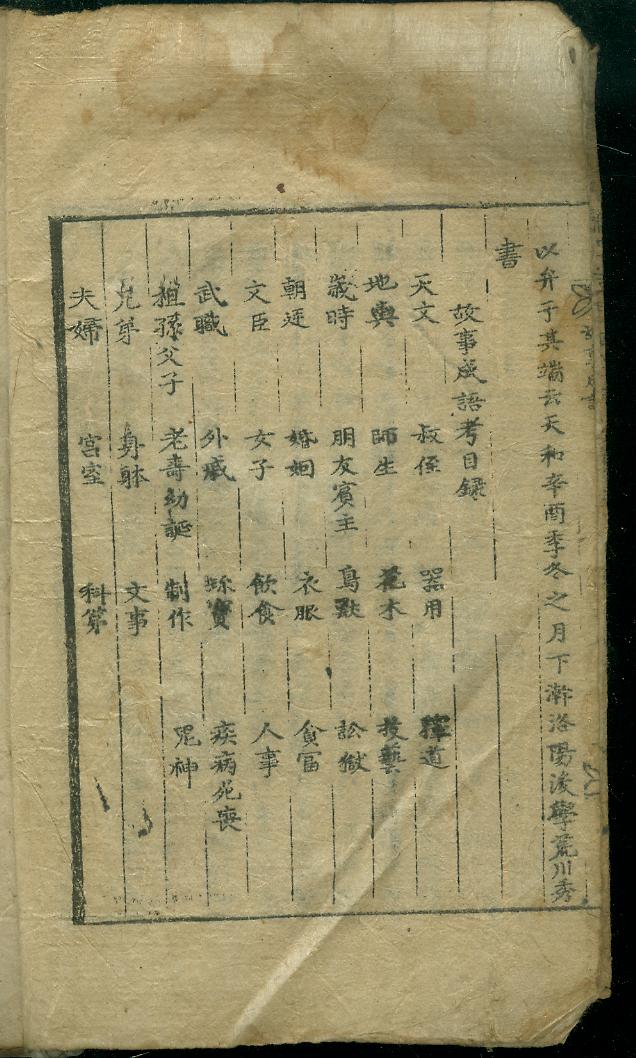 以弁于其端云天和辛酉季冬之月下澣洛陽後學荒川秀
書
故事成語考目録
天文 叔侄 器用 釋道
地輿 師生 花木 技藝
歳時 朋友賓主 鳥獸 訟獄
朝廷 婚姻 衣服 貧富
文臣 女子 飲食 人事
武職 外戚 珎寳 疾病死喪
祖孫父子 老壽幼誕 制作 鬼神
兄弟 身体 文事
夫婦 宮室 科第